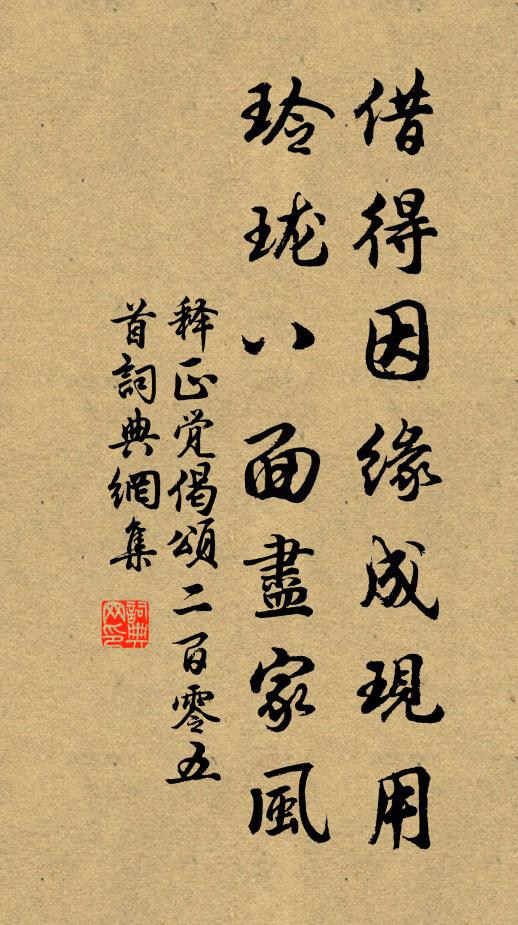 借得因緣成現用
玲珑八面盡家風
释正觉偈頌二百零五
首詞典網集
詞典网印